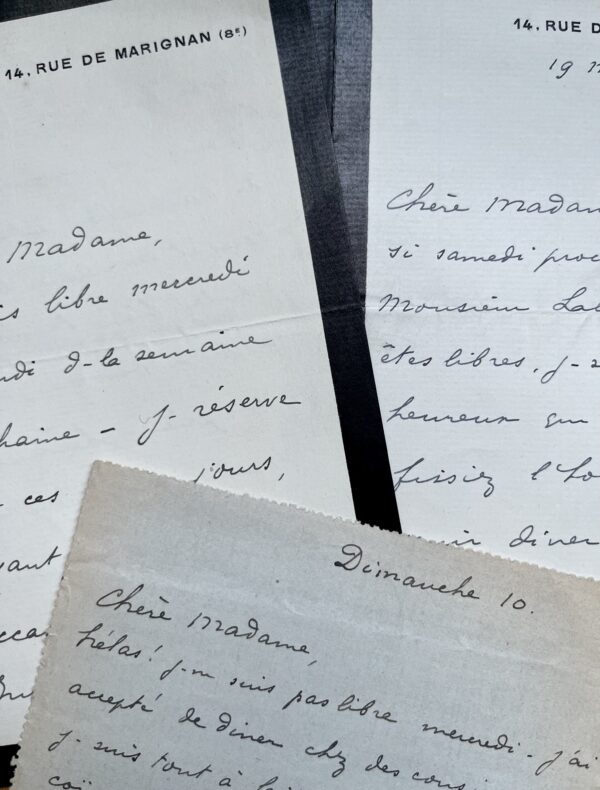 14, RUE DE MARIGNAN (8e)
Madame,
is libre mercredi
di d-la semaine
haine - j- réserve
ces jours,
vant
14, RUE D
19
Chère Madam
si samedi proc
Monsieur Lal
êtes libres, j-
heureux qu
fissiez l'ho
diner
Dimanche 10.
Chère Madame,
hélas! j-n suis pas libre mercredi - j'ai
accepté de diner chez des cous
j- suis tout à